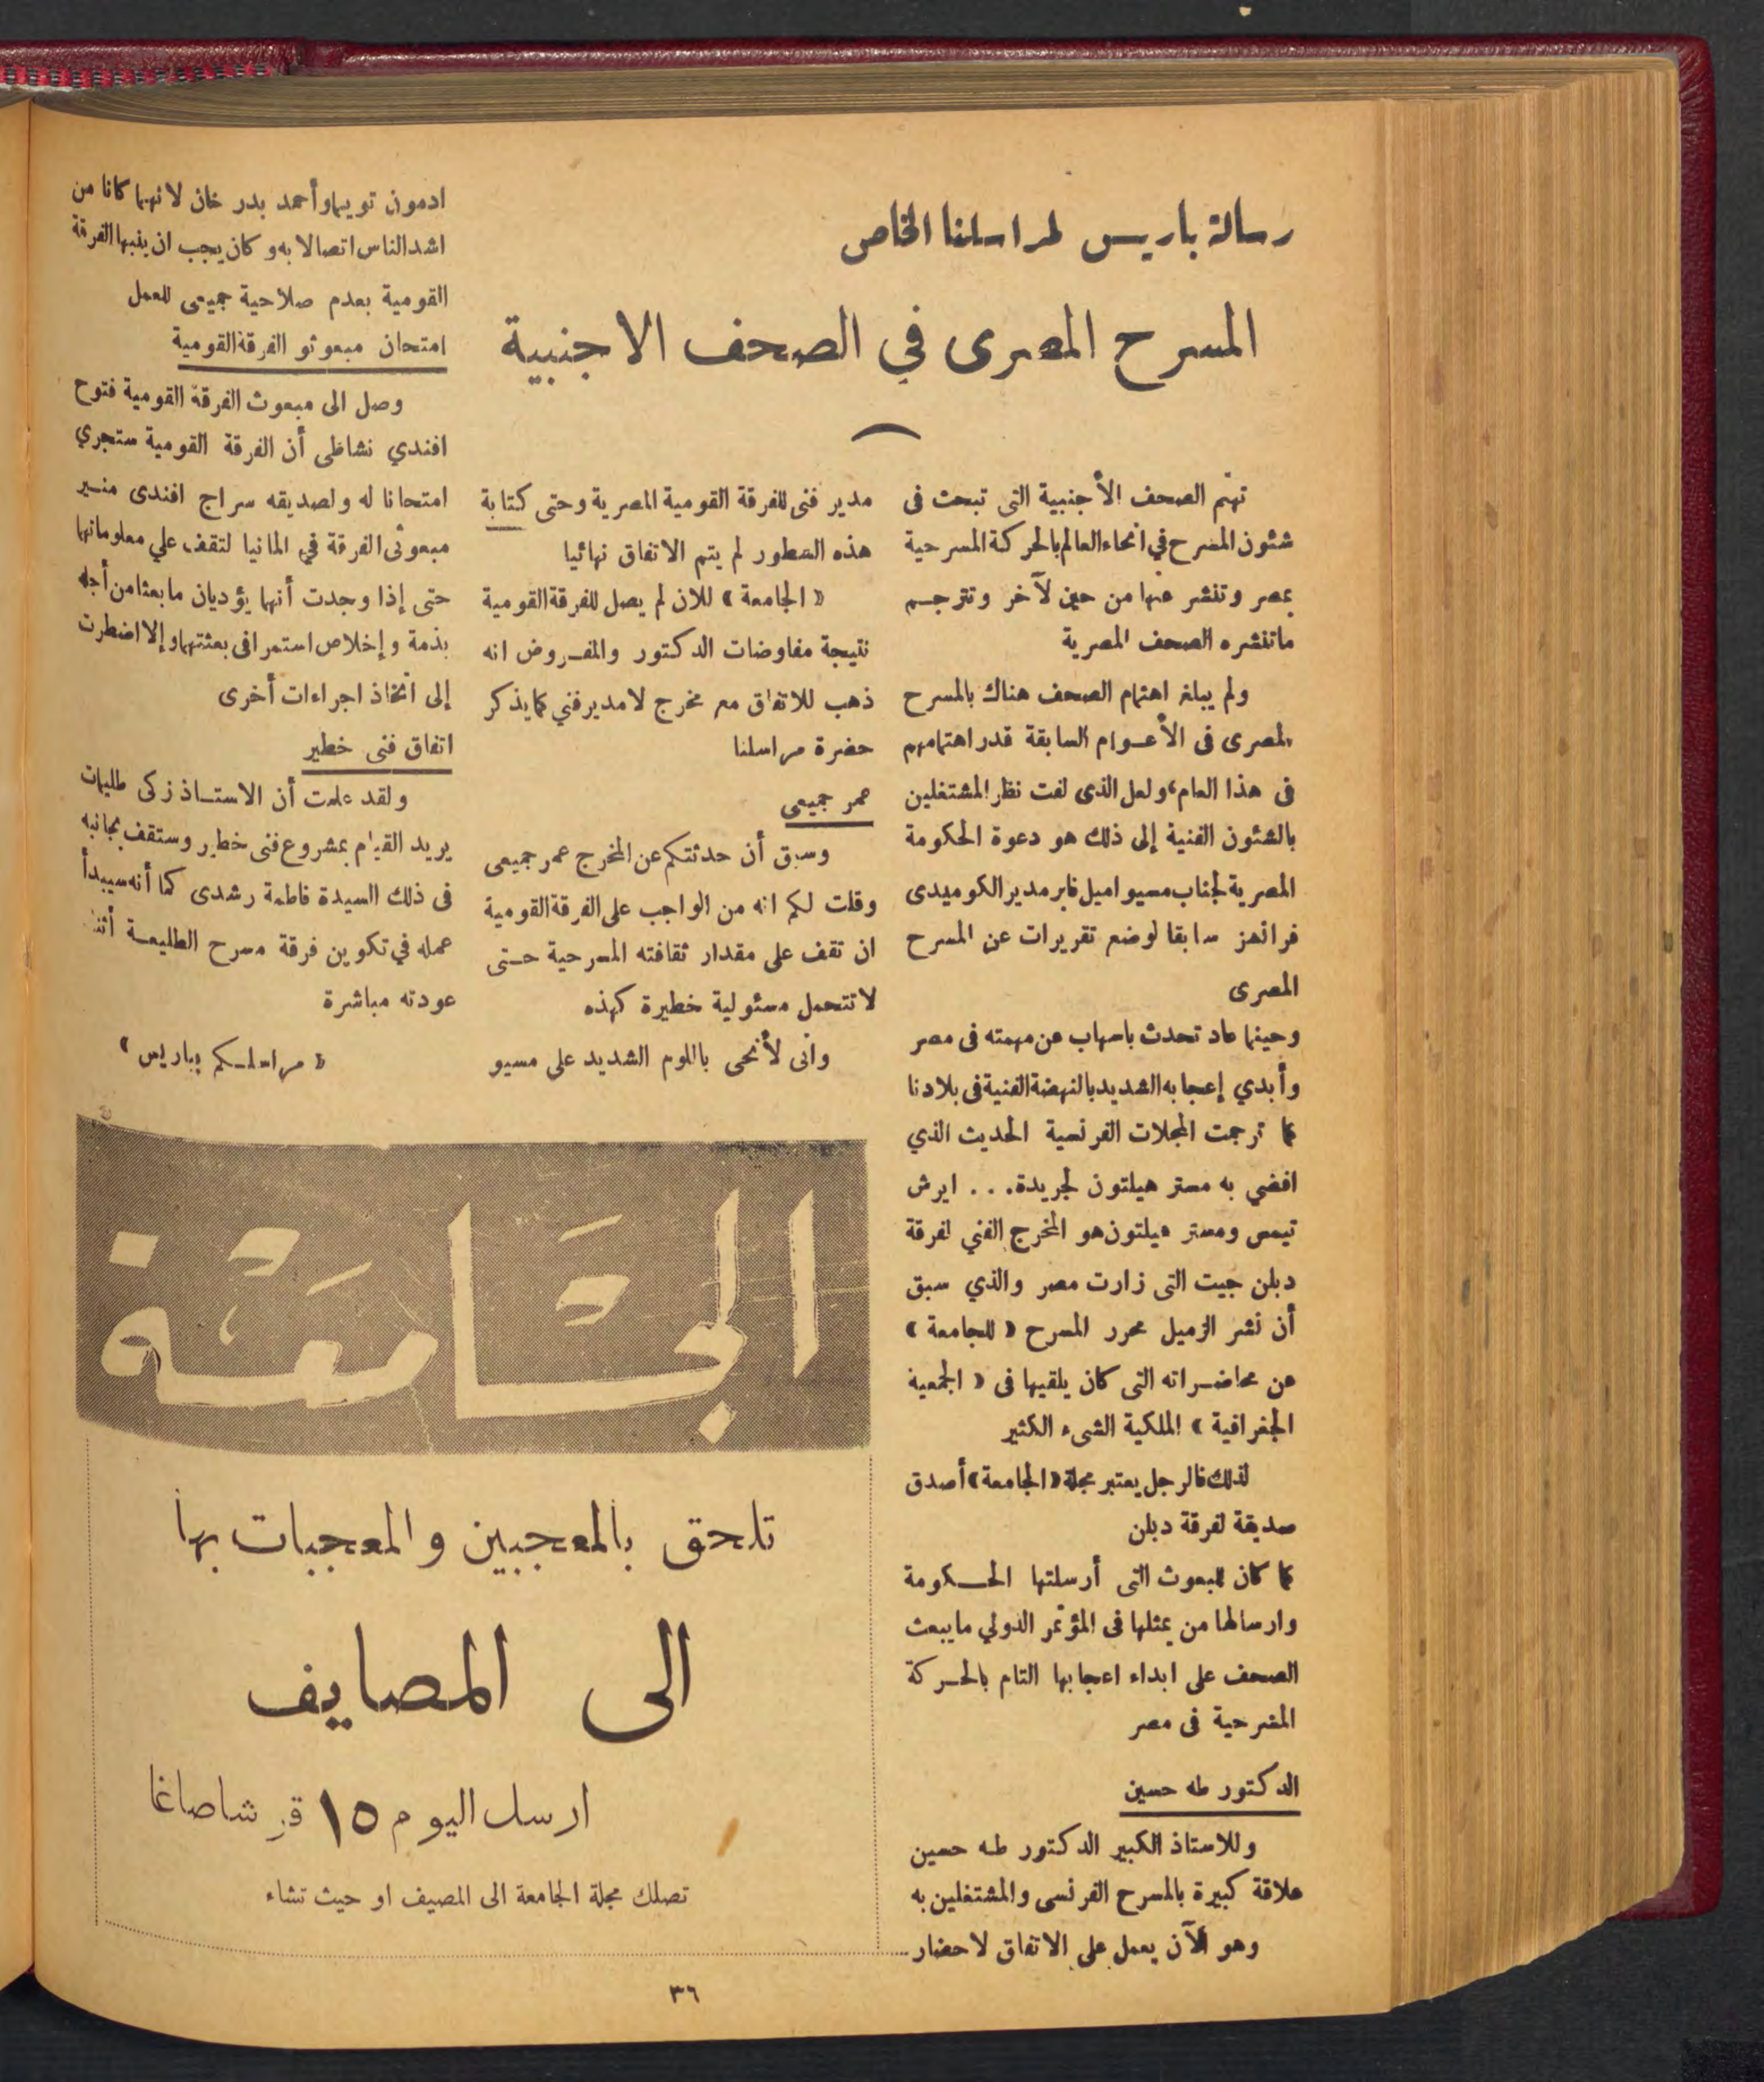 رسالة باريس لمراسلنا الخاص
المسرح المصرى في الصحف الاجنبية
تهتم الصحف الأجنبية التى تبحث فى
شئون المسرح في انحاء العالم بالحركة المسرحية
بمصر وتنشر عنها من حين لآخر وتترجم
ماتنشره الصحف المصرية
ولم يبلغ اهتمام الصحف هناك بالمسرح
المصرى فى الأعوام السابقة قدر اهتمامهم
فى هذا العام، ولعل الذى لفت نظر المشتغلين
بالشئون الفنية إلى ذلك هو دعوة الحكومة
المصرية لجناب مسيو اميل فابر مدير الكوميدى
فرانسز سابقا لوضع تقريرات عن المسرح
المصرى
وحينما عاد تحدث باسهاب عن مهمته فى مصر
وأبدي إعجابه الشديد بالنهضة الفنية فى بلادنا
كما ترجمت المجلات الفرنسية الحديث الذي
افضي به مستر هيلتون لجريدة . . . ايرش
تيمس ومستر هيلتون هو المخرج الفني لفرقة
دبلن جيت التى زارت مصر والذي سبق
أن نشر الزميل محرر المسرح « للجامعة »
عن محاضراته التى كان يلقيها فى « الجمعية
الجغرافية » الملكية الشىء الكثير
لذلك فالرجل يعتبر مجلة «الجامعة» أصدق
صديقة لفرقة دبلن
كما كان للبعوث التى أرسلتها الحكومة
وارسالها من يمثلها فى المؤتمر الدولي مايبعث
الصحف على ابداء اعجابها التام بالحركة
المسرحية فى مصر
الدكتور طه حسين
وللاستاذ الكبير الدكتور طه حسين
علاقة كبيرة بالمسرح الفرنسى والمشتغلين به
وهو الآن يعمل على الاتفاق لاحضار
مدير فنى للفرقة القومية المصرية وحتى كتابة
هذه السطور لم يتم الاتفاق نهائيا
« الجامعة » للان لم يصل للفرقة القومية
نتيجة مفاوضات الدكتور والمفروض انه
ذهب للاتفاق مع مخرج لامدير فني كما يذكر
حضرة مراسلنا
عمر جميعى
وسبق أن حدثتكم عن المخرج عمر جميعى
وقلت لكم انه من الواجب على الفرقة القومية
ان تقف على مقدار ثقافته المسرحية حتى
لا تتحمل مسئولية خطيرة كهذه
وانى لأنحى باللوم الشديد على مسيو
ادمون تويما وأحمد بدر خان لانهما كانا من
اشد الناس اتصالا به و كان يجب ان ينبها الفرقة
القومية بعدم صلاحية جميعى للعمل
امتحان مبعوثو الفرقة القومية
وصل الى مبعوث الفرقة القومية فتوح
افندي نشاطى أن الفرقة القومية ستجري
امتحانا له ولصديقه سراج افندى منير
مبعوثى الفرقة في المانيا لتقف علي معلوماتها
حتى إذا وجدت أنهما يؤديان ما بعثا من أجله
بذمة وإخلاص استمرا فى بعثتهما وإلا اضطرت
إلى اتخاذ اجراءات أخرى
اتفاق فنى خطير
ولقد علمت أن الاستاذ زكى طليمات
يريد القيام بمشروع فنى خطير وستقف بجانبه
فى ذلك السيدة فاطمة رشدى كما أنه سيبدأ
عمله في تكوين فرقة مسرح الطليعة أثناء
عودته مباشرة
« مراسلكم بباريس »
الجامعة
تلحق بالمعجبين والمعجبات بها
الى المصايف
ارسل اليوم ١٥ قرشا صاغا
تصلك مجلة الجامعة الى المصيف او حيث تشاء
٣٦